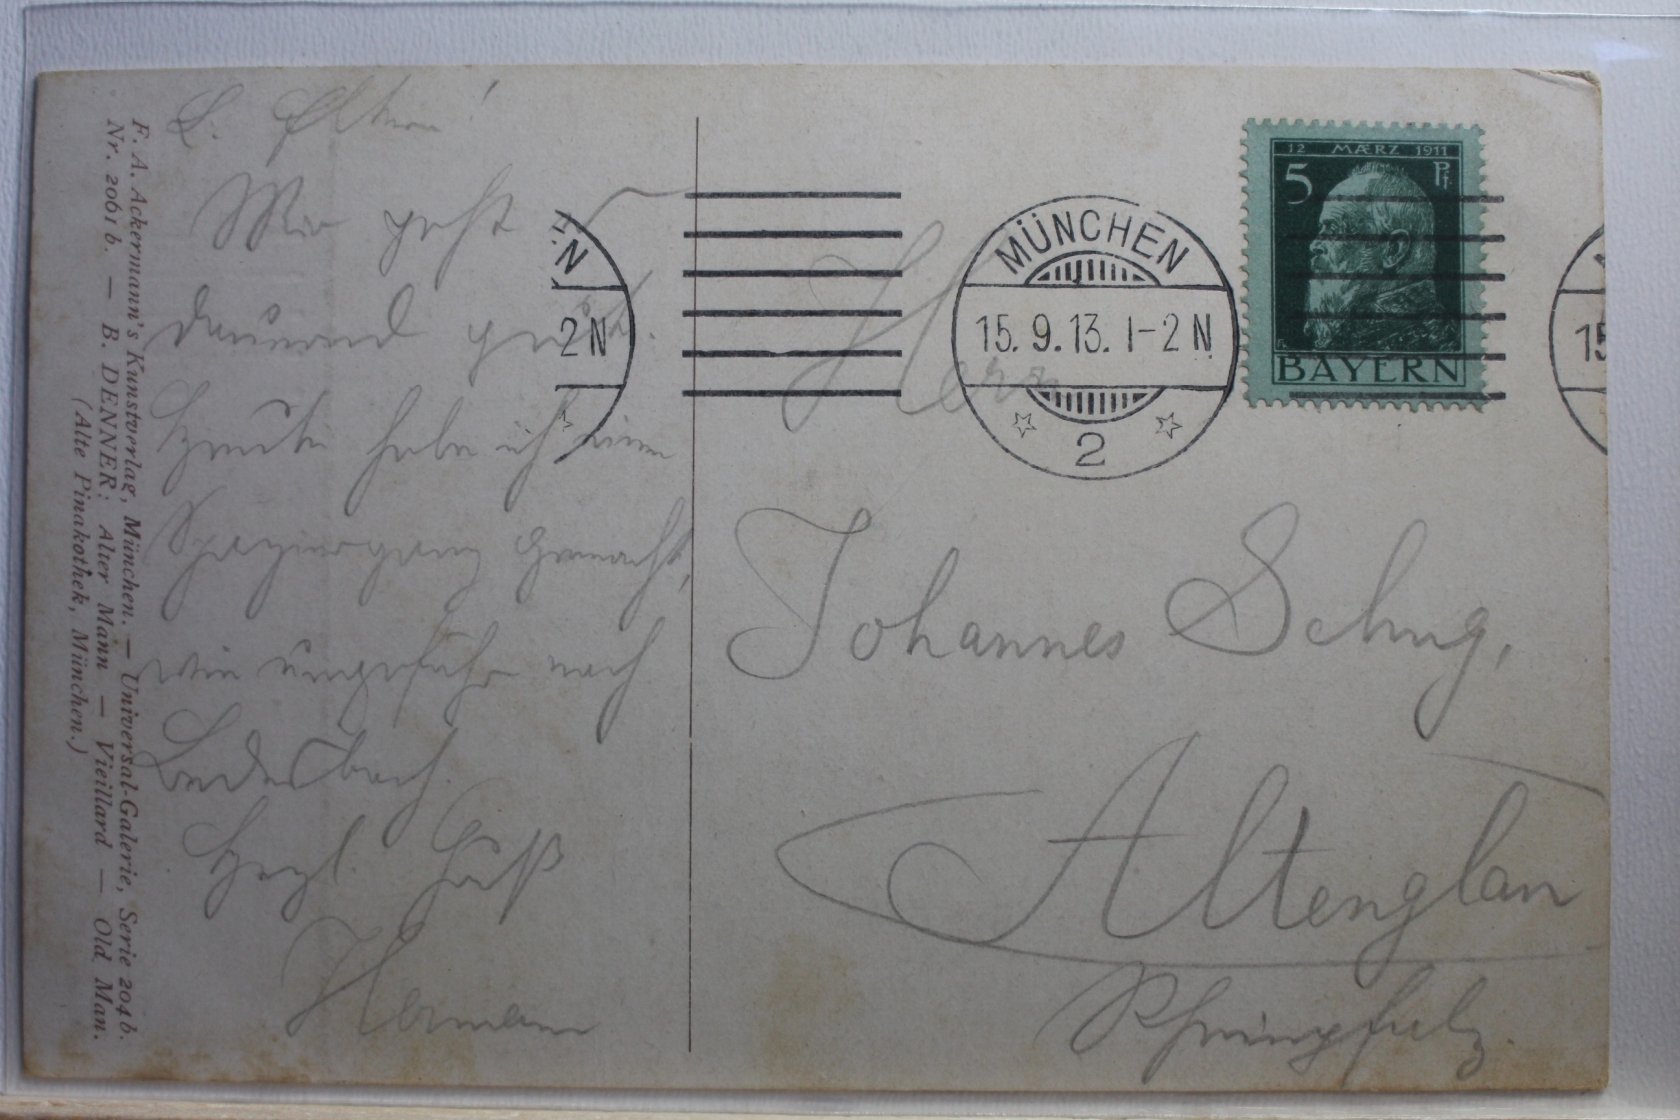 L. Eltern!
Mir geht es
dauernd gut.
Heute habe ich einen
Spaziergang gemacht,
wie ungefähr nach
Bedesbach.
Herzl. Gruß
Hermann
F. A. Ackermann's Kunstverlag, München. — Universal-Galerie, Serie 204 b.
Nr. 2061 b. — B. DENNER: Alter Mann — Vieillard — Old Man.
(Alte Pinakothek, München.)
N
2 N
MÜNCHEN
15. 9. 13. 1-2 N.
2
12 MÆRZ 1911
5 Pf
BAYERN
15
Herrn
Johannes Schug,
Altenglan
Rheinpfalz.